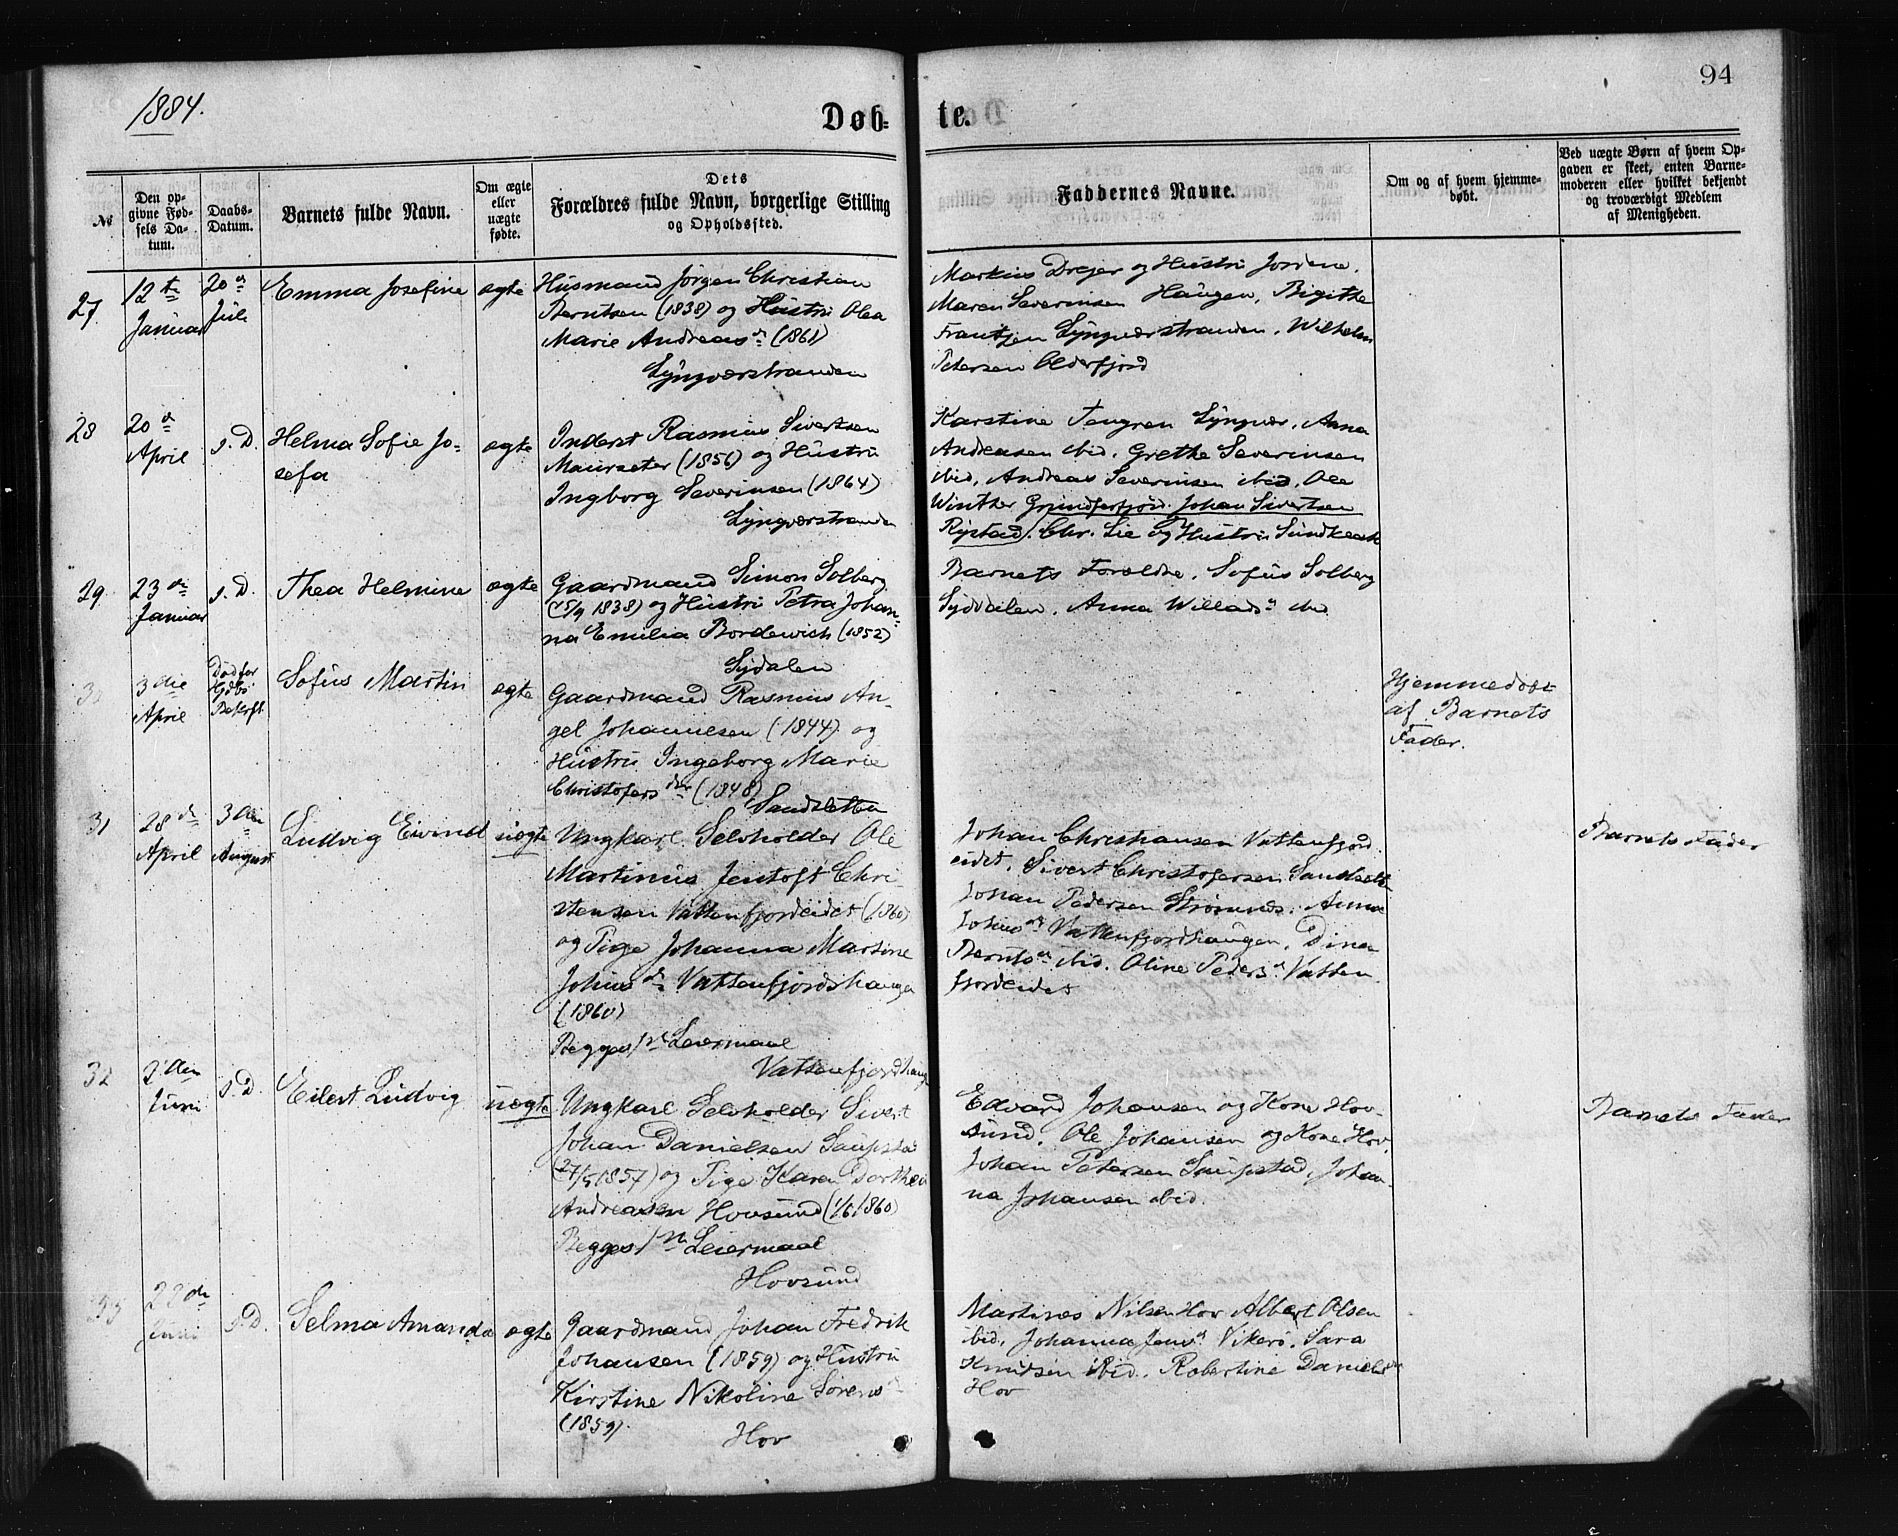 94
1884.
Døb-
te.
№
Den op-
givne Fød-
sels Da-
tum.
Daabs-
Datum.
Barnets fulde Navn.
Om ægte
eller
uægte
fødte.
Dets
Forældres fulde Navn, borgerlige Stilling
og Opholdssted.
Faddernes Navne.
Om og af hvem hjemme-
døbt.
Ved uægte Børn af hvem Op-
gaven er skeet, enten Barne-
moderen eller hvilket bekjendt
og troværdigt Medlem
af Menigheden.
27
12te
Januar
20de
Juli
Emma Josefine
ægte
Husmand Jørgen Christian
Berntsen (1838) og Hustru Olea
Marie Andreasd (1861)
Lyngværstranden
Markus Drejer og Hustru Jordene.
Maren Severinsen Haugen, Birgithe
Frantzen Lyngværstranden, Wilhelm
Petersen Olderfjord
28
20de
April
s. D.
Helma Sofie Jo-
sefa
ægte
Inderst Rasmus Sivertsen
Maurseter (1856) og Hustru
Ingborg Severinsen (1864)
Lyngværstranden
Karstine Tengren Lyngvær, Anna
Andreasen ibid. Grethe Severinsen
ibid, Andreas Severinsen ibid, Ole
Winther Grundforfjord. Johan Sivertsen
Rystad. Chr. Lie og Hustru Sundklak
29
23de
Januar
s. D.
Thea Helmine
ægte
Gaardmand Simon Solberg
(25/9 1838) og Hustru Petra Johan-
na Emilia Bordewich (1852)
Sydalen
Barnets Forældre, Sofus Solberg
Syddalen, Anna Willadsd ibid
30
3die
April
Død før
Sofus Martin
ægte
Gaardmand Rasmus An-
gel Johannesen (1844) og
Hustru Ingeborg Marie
Christofersdtr (1848)
Sandsletten
Hjemmedøbt
af Barnets
Fader.
31
28de
April
3die
August
Ludvig Eivind
uægte
Ungkarl Selvholder Ole
Martinus Jentoft Chri-
stensen Vattenfjordeidet (1860)
og Pige Johanna Martine
Johusd Vattenfjordshaugen
(1860)
Begges 1ste Leiermaal
Vattenfjordhaug
Johan Christiansen Vattenfjord
eidet, Sivert Christofersen Sandslett
Johan Pedersen Strømnes, Anna
Johusd Vattenfjordhaugen, Dina
Berntsd ibid. Oline Pedersd Vatten
fjordeidet
Barnets Fader
32
2den
Juni
s. D.
Eilert Ludvig
uægte
Ungkarl Selvholder Sivert
Johan Danielsen Saupstad
(27/5 1857) og Pige Karen Dorthea
Andreasen Hovsund (1/6 1860)
Begges 1ste Leiermaal
Hovsund
Edvard Johansen og Kone Hov-
sund, Ole Johansen og Kone Hov,
Johan Petersen Saupstad, Johan-
na Johansen ibid.
Barnets Fader
33
22de
Juni
s. D.
Selma Amanda
ægte
Gaardmand Johan Fredrik
Johansen (1859) og Hustru
Kirstine Nikoline Sørensd
(1859).
Hov
Martines Nilsen Hov Albert Olsen
ibid, Johanna Jensd Vikerø. Sara
Knudsen ibid. Robertine Danielsd
Hov